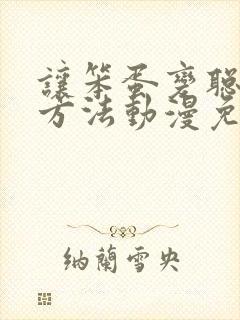 讓笨蛋變聰
方法動漫免
納蘭雪央